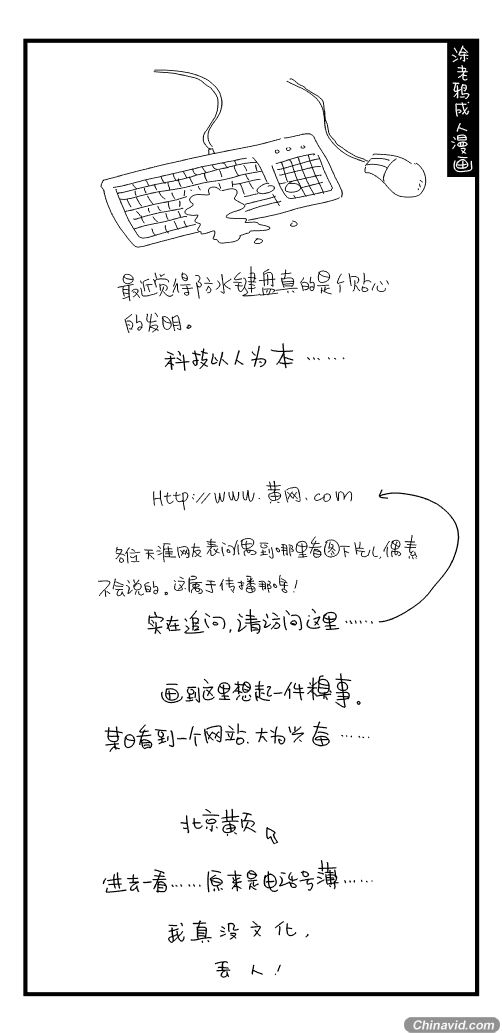 涂老鸦成人漫画
最近觉得防水键盘真的是个贴心
的发明。
科技以人为本……
Http://www.黄网.com
各位天涯网友表问偶到哪里看图下片儿,偶素
不会说的。这属于传播那啥!
实在追问,请访问这里……
画到这里想起一件糗事。
某日看到一个网站、大为兴奋……
北京黄页
进去一看……原来是电话号薄……
我真没文化,
丢人!
Chinavid.com